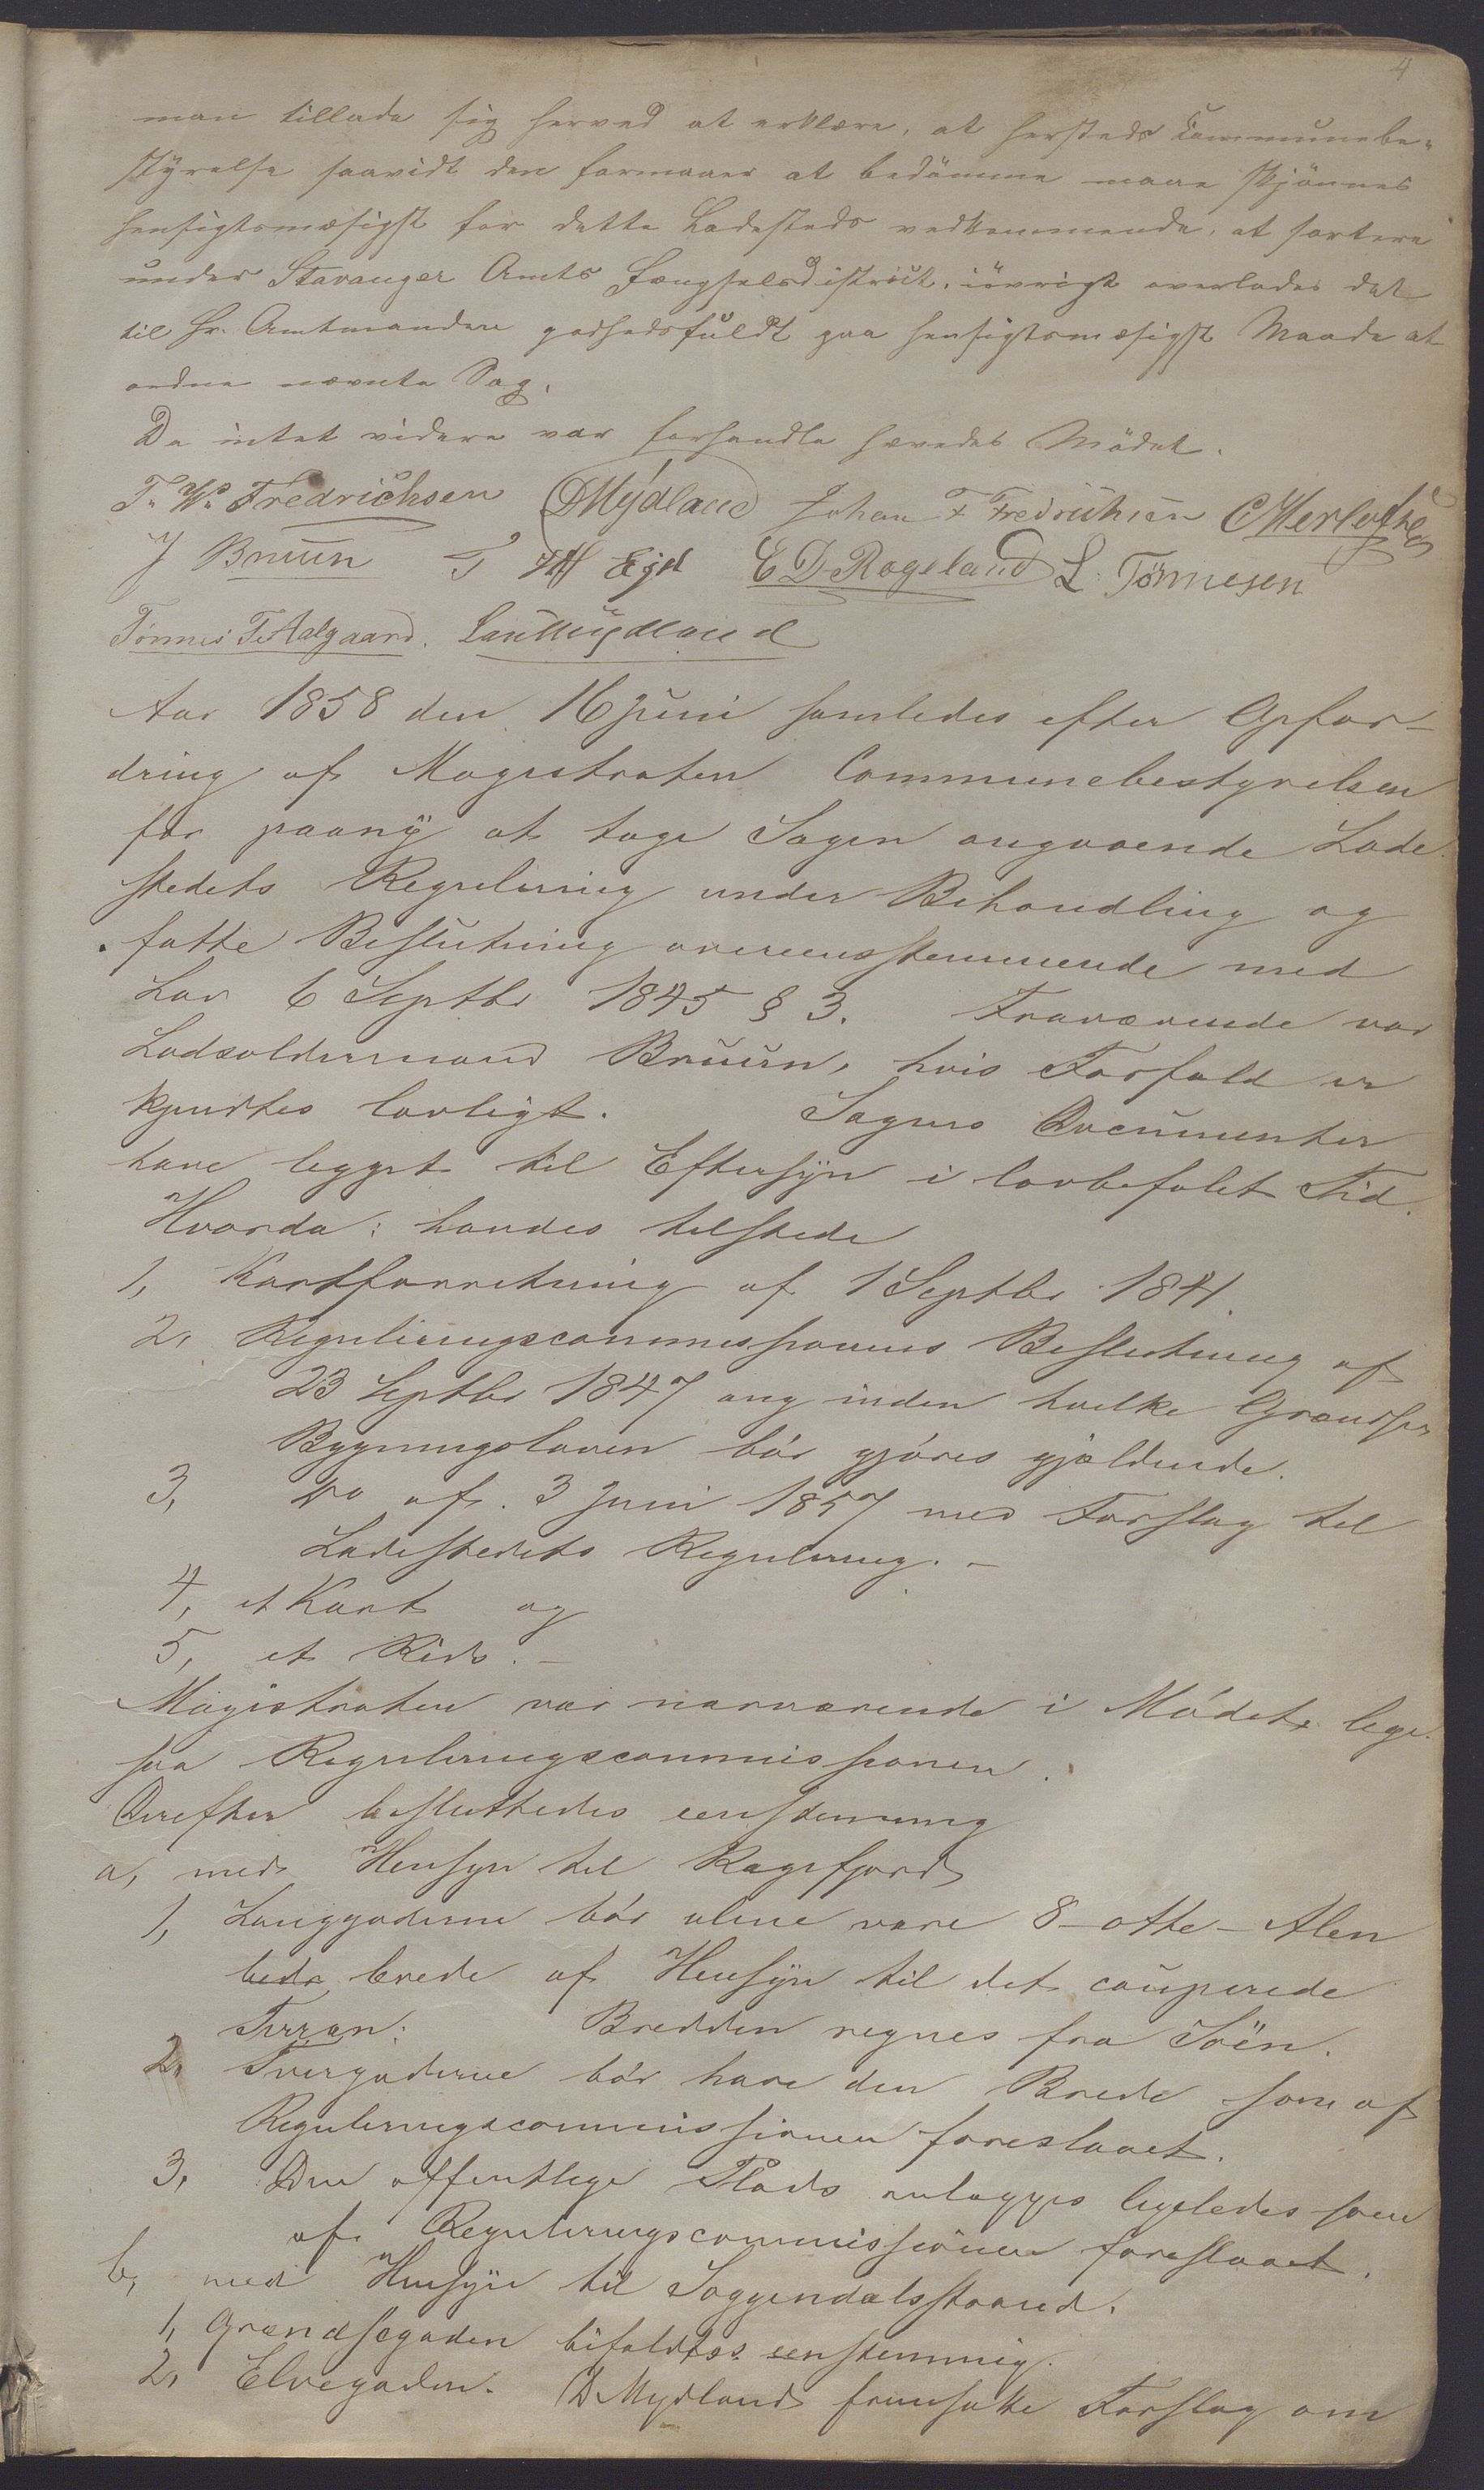 4
man tillade sig herved at erklære, at hersteds Communebe-
styrelse saavidt den formaaer at bedømme maae skjønnes
hensigtsmæsigst for dette Ladesteds vedkommende, at sortere
under Stavanger Amts Fængselsdistrict, iøvrigt overlades det
til Hr. Amtmanden godhedsfuldt paa hensigtsmæsigst Maade at
ordne nævnte Sag.
Da intet videre var forhandle hævedes Mödet.
T. W. Fredrichsen DMydland Johan F Fredrichsen
J Bruun T Ejel E D Rogeland L. Tönnesen
Tönnes T. Aalgaard. LauMydland
Aar 1858 den 16 Juni samledes efter Opfor-
dring af Magistraten Communebestyrelsen
for paany at tage Sagen angaaende Lade
stedets Regulering under Behandling og
fatte Beslutning overensstemmende med
Lov 6 Septbr 1845 § 3. Fraværende var
Lodsoldermand Bruun, hvis Forfald er
kjendtes lovligt. Sagens Documenter
have ligget til Eftersyn i lovbefalet Tid.
Hvorda: havdes tilstede
1, Kartforretning af 1 Septbr 1841.
2, Reguleringscommissionens Beslutning af
23 Septbr 1847 ang inden hvilke Grændser
Bygningsloven bör gjöres gjældende.
3, Do af 3 Juni 1857 med Forslag til
Ladestedets Regulering. –
4, et Kart og
5, et Rids. –
Magistraten var nærværende i Mödet lige
saa Reguleringscommissionen.
Derefter besluttedes eenstemmig
a, med Hensyn til Ragefjord
1, Langgaderne bör alene være 8 – otte – Alen
brede af Hensyn til det couperede
Terræn: Bredden regnes fra Söen.
2, Tvergaderne bör have den Brede som af
Reguleringscommissionen foreslaaet.
3, Den offentlige Plads anlægges ligeledes som
af Reguleringscommissionen foreslaaet.
b, med Hensyn til Soggendalsstrand.
1, Grændsegaden bifaldtes eenstemmig.
2, Elvegaden. D Mydland fremsatte Forslag om